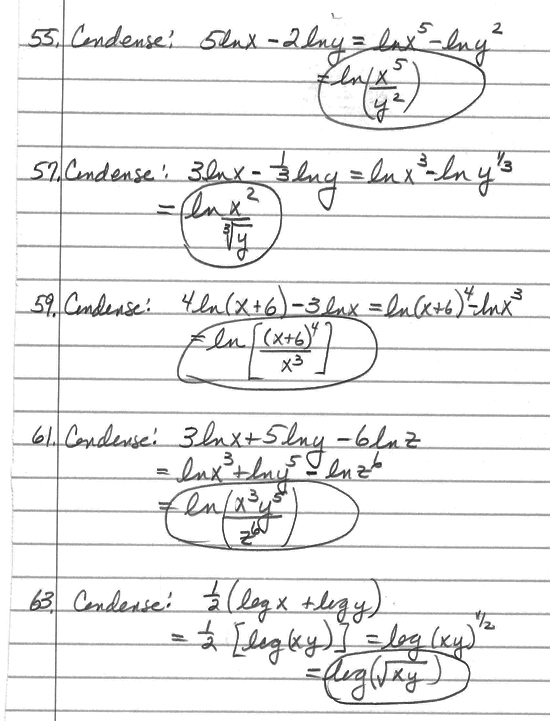 55. Condense: 5lnx - 2lny = lnx⁵ - lny²
= ln(x⁵/y²)
57. Condense: 3lnx - 1/3 lny = lnx³ - lny^1/3
= ln x²/∛y
59. Condense: 4ln(x+6) - 3lnx = ln(x+6)⁴ - lnx³
= ln[(x+6)⁴/x³]
61. Condense: 3lnx + 5lny - 6lnz
= lnx³ + lny⁵ - lnz⁶
= ln(x³y⁵/z⁶)
63. Condense: 1/2(logx + logy)
= 1/2[log(xy)] = log(xy)^1/2
= log(√xy)